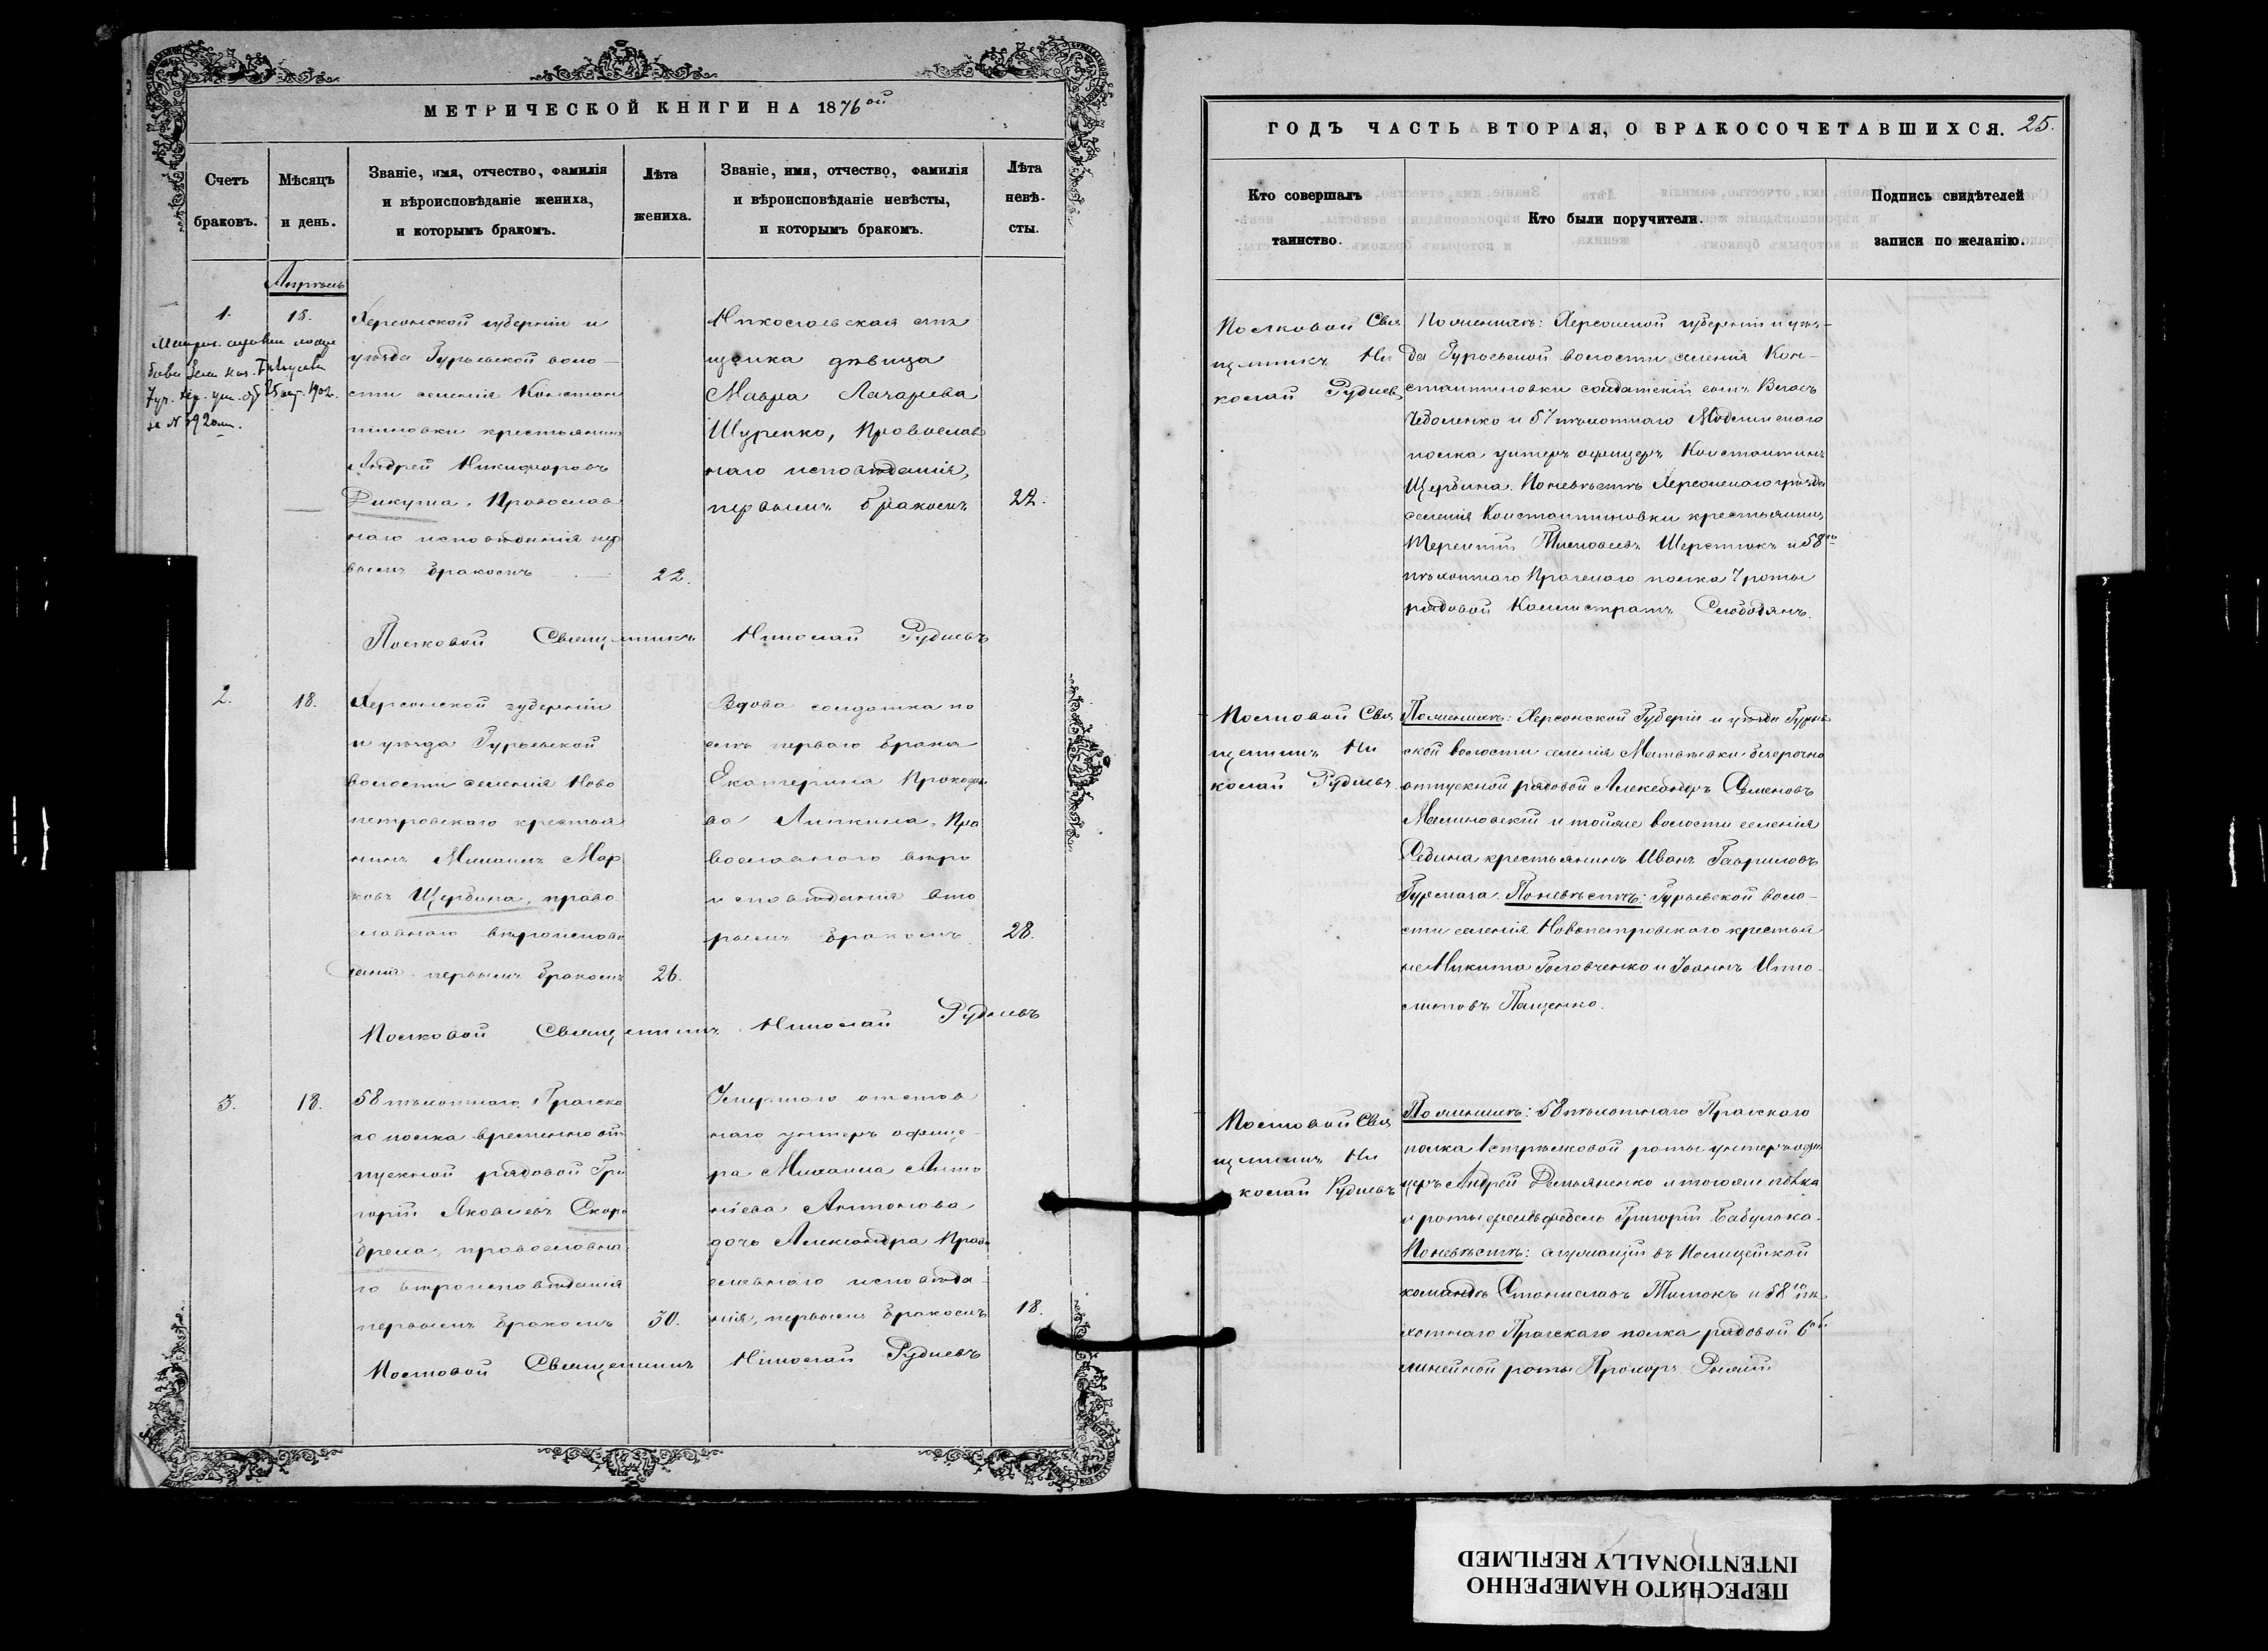 МЕТРИЧЕСКОЙ КНИГИ НА 1876ой
Счетъ
браковъ.
Мѣсяцъ
и день.
Званіе, имя, отчество, фамилія
и вѣроисповѣданіе жениха,
и которымъ бракомъ.
Лѣта
жениха.
Званіе, имя, отчество, фамилія
и вѣроисповѣданіе невѣсты,
и которымъ бракомъ.
Лѣта
невѣ-
сты.
Апрѣль
1.
18.
Херсонской губерніи и
уѣзда Гурьевской воло-
сти селенія Констан
тиновки крестьянинъ
Андрей Никифоровъ
Православ
наго исповѣданія пер
вымъ бракомъ
22.
Никопольская мѣ
щанка дѣвица
Мавра Лазарева
Щуренко, Православ
наго исповѣданія,
первымъ бракомъ
22.
Полковой Священникъ Николай Рудневъ
2.
18.
Херсонской губерніи
и уѣзда Гурьевской
волости селенія Ново
петровскаго крестья
нинъ Михаилъ Мар
ковъ Щербина, право
славнаго вѣроисповѣ
данія первымъ бракомъ
26.
Вдова солдатка по
слѣ перваго брака
Екатерина Прокофье
ва Липкина, Пра
вославнаго вѣро
исповѣданія вто
рымъ бракомъ
28.
Полковой Священникъ Николай Рудневъ
3.
18.
58 пѣхотнаго Пражска
го полка временно от
пускной рядовой Гри
горій Яковлевъ Скоро
православна
го вѣроисповѣданія
первымъ бракомъ
30.
Умершаго отстав
наго унтеръ офице-
ра Михаила Анто
ніева Антонова
дочь Александра Право
славнаго исповѣда-
нія, первымъ бракомъ
18.
Полковой Священникъ Николай Рудневъ
ГОДЪ ЧАСТЬ ВТОРАЯ, О БРАКОСОЧЕТАВШИХСЯ. 25.
Кто совершалъ
таинство.
Кто были поручители.
Подпись свидѣтелей
записи по желанію.
Полковой Свя
щенникъ Ни
колай Рудневъ
По женихѣ: Херсонской губерніи и уѣз-
да Гурьевской волости селенія Кон-
стантиновки солдатскій сынъ Власъ
и 57 пѣхотнаго Модлинскаго
полка унтеръ офицеръ Константинъ
Щербина. По невѣстѣ Херсонскаго уѣзда
селенія Константиновки крестьянинъ
Терентій Шерстюкъ и 58го
пѣхотнаго Пражскаго полка 7 роты
рядовой Каллистратъ Слободянъ.
Полковой Свя
щенникъ Ни
колай Рудневъ
По женихѣ: Херсонской Губерніи и уѣзда Гурьев
ской волости селенія Матвѣевки безсрочно
отпускной рядовой Александръ Семеновъ
Малиновскій и тойже волости селенія
крестьянинъ Иванъ Гавриловъ
По невѣстѣ: Гурьевской воло-
сти селенія Новопетровскаго крестья
не Никита Головченко и Іоаннъ Иппо-
литовъ Пащенко.
Полковой Свя
щенникъ Ни
колай Рудневъ
По женихѣ: 58 пѣхотнаго Пражскаго
полка 1 стрѣлковой роты унтеръ офи
церъ Андрей Демьяненко и тогоже полка
роты фельдфебель Григорій
По невѣстѣ: служащій въ Полицейской
командѣ Станиславъ и 58го пѣ
хотнаго Пражскаго полка рядовой 6ой
линейной роты Прохоръ
ПЕРЕСНЯТО НАМЕРЕННО
INTENTIONALLY REFILMED